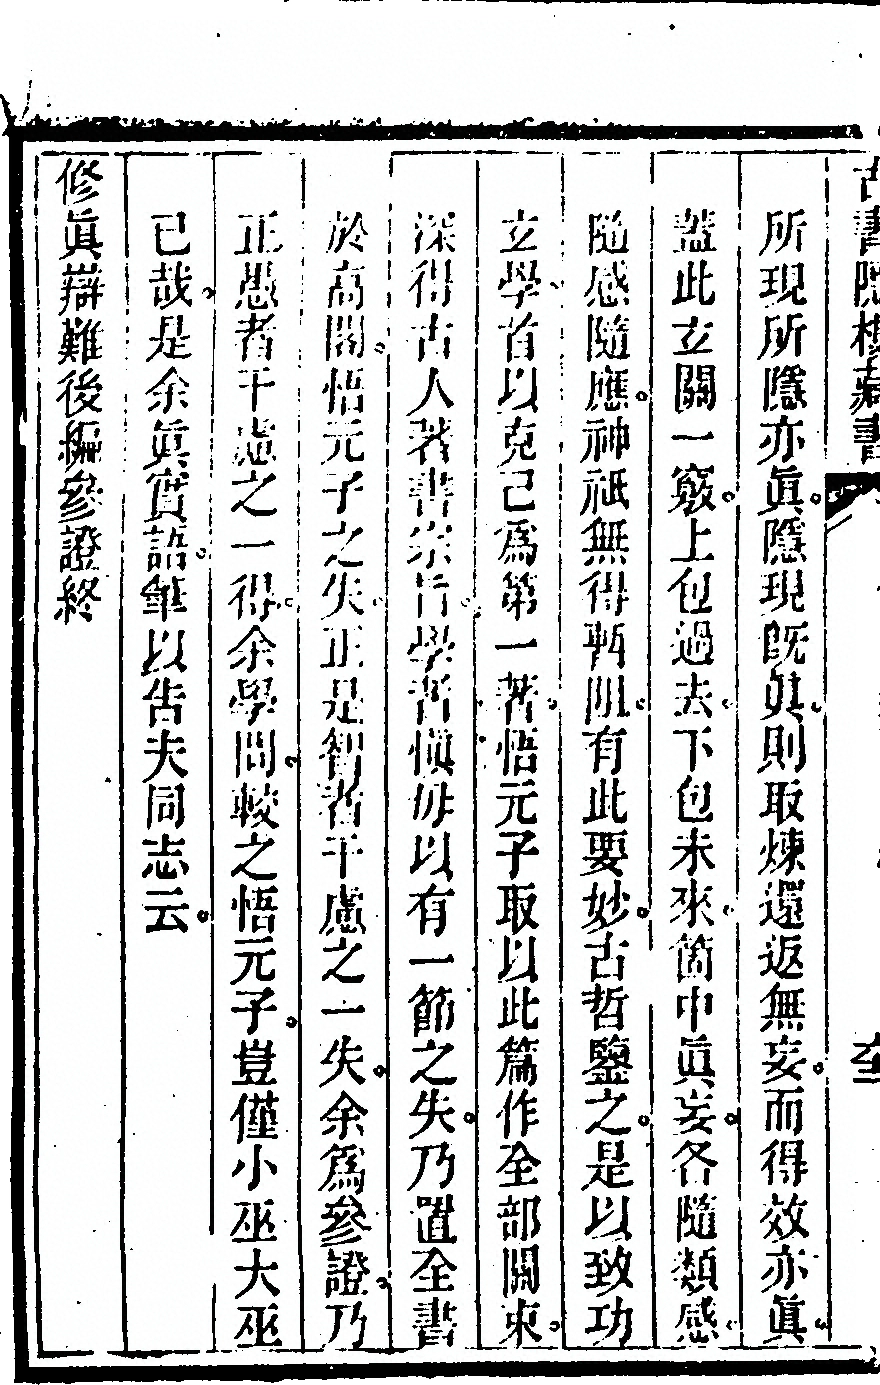 古書隱樓藏書
所現所隱亦眞。隱現既眞。則取煉還返無妄。而得效亦眞。
蓋此玄關一竅。上包過去。下包未來。箇中眞妄。各隨類感。
隨感隨應。神祇無得暫阻。有此要妙。古哲鑒之。是以致功
玄學。首以克己爲第一著。悟元子取以此篇作全部關束。
深得古人著書宗旨。學者愼毋以有一節之失。乃置全書
於高閣。悟元子之失。正是智者千慮之一失。余爲參證。乃
正愚者千慮之一得。余學問。較之悟元子。豈僅小巫大巫
已哉。是余眞實語。筆以告夫同志云。
修眞辯難後編參證終